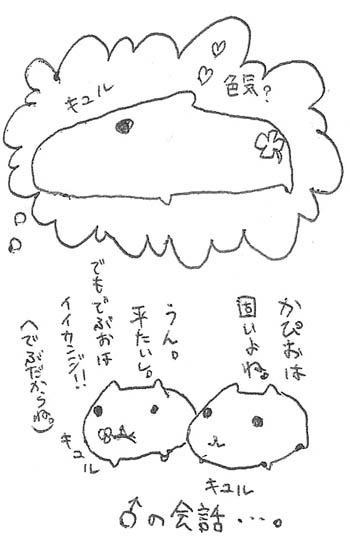 色気?
キュル
かぴおは
固いよね。
うん。
平たいし。
でもでぶおは
イイカンジ!!
(でぶだからね。)
キュル
キュル
♂の会話…。